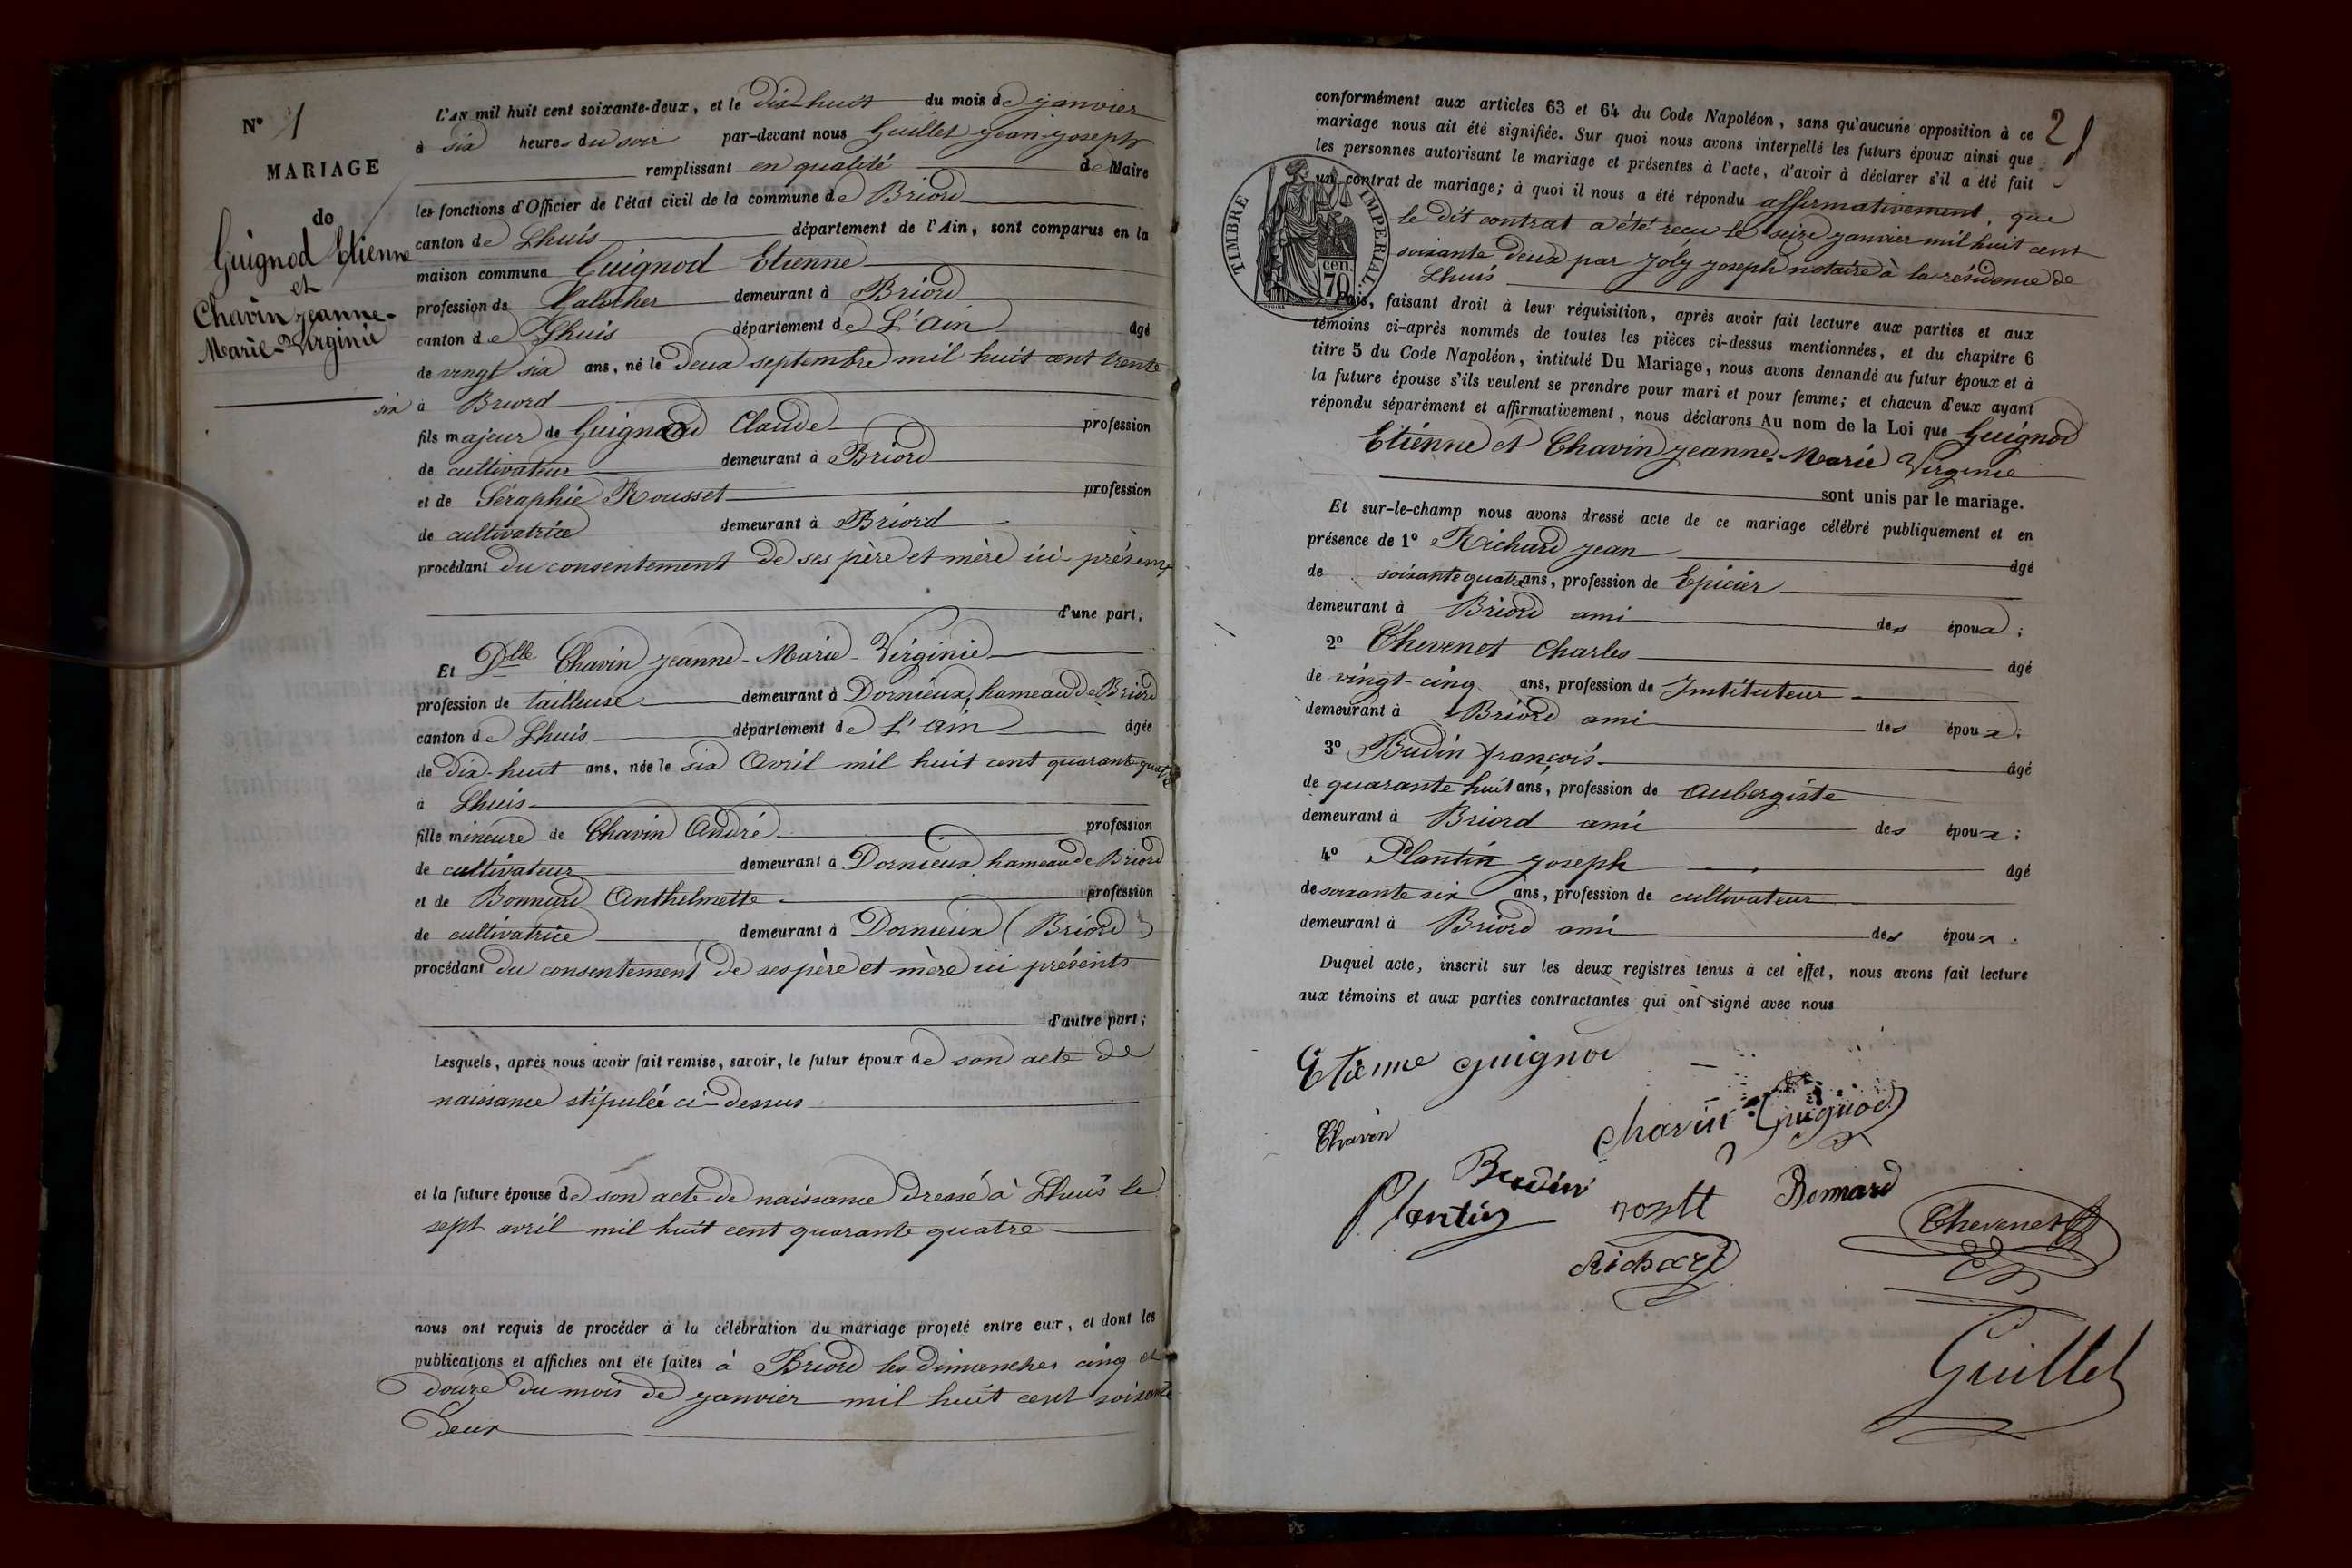 N° 1
MARIAGE
de
Guignod Etienne
et
Chavin Jeanne-
Marie-Virginie
L'AN mil huit cent soixante-deux, et le dix huit du mois de janvier
à six heures du soir par-devant nous Guillet Jean-Joseph
remplissant en qualité de Maire
les fonctions d'Officier de l'état civil de la commune de Briord
canton de Lhuis département de l'Ain, sont comparus en la
maison commune Guignod Etienne
profession de demeurant à Briord
canton de Lhuis département de L'Ain âgé
de vingt six ans, né le deux septembre mil huit cent trente
six à Briord
fils majeur de Guignod Claude profession
de cultivateur demeurant à Briord
et de Séraphie Rousset profession
de cultivatrice demeurant à Briord
procédant du consentement de ses père et mère ici présents
d'une part;
Et Dlle Chavin Jeanne-Marie-Virginie
profession de tailleuse demeurant à Dornieux, hameau de Briord
canton de Lhuis département de L'Ain âgée
de dix-huit ans, née le six Avril mil huit cent quarante quatre
à Lhuis
fille mineure de Chavin André profession
de cultivateur demeurant à Dornieux, hameau de Briord
et de Bonnard Anthelmette profession
de cultivatrice demeurant à Dornieux (Briord)
procédant du consentement de ses père et mère ici présents
d'autre part;
Lesquels, après nous avoir fait remise, savoir, le futur époux de son acte de
naissance stipulée ci-dessus
et la future épouse de son acte de naissance dressé à Lhuis le
sept avril mil huit cent quarante quatre
nous ont requis de procéder à la célébration du mariage projeté entre eux, et dont les
publications et affiches ont été faites à Briord les dimanches cinq et
douze du mois de janvier mil huit cent soixante
deux
21
conformément aux articles 63 et 64 du Code Napoléon, sans qu'aucune opposition à ce
mariage nous ait été signifiée. Sur quoi nous avons interpellé les futurs époux ainsi que
les personnes autorisant le mariage et présentes à l'acte, d'avoir à déclarer s'il a été fait
un contrat de mariage; à quoi il nous a été répondu affirmativement, que
le dit contrat a été reçu le seize janvier mil huit cent
soixante deux par Joly Joseph notaire à la résidence de
Lhuis
TIMBRE IMPERIAL
70 cen.
Puis, faisant droit à leur réquisition, après avoir fait lecture aux parties et aux
témoins ci-après nommés de toutes les pièces ci-dessus mentionnées, et du chapitre 6
titre 5 du Code Napoléon, intitulé Du Mariage, nous avons demandé au futur époux et à
la future épouse s'ils veulent se prendre pour mari et pour femme; et chacun d'eux ayant
répondu séparément et affirmativement, nous déclarons Au nom de la Loi que Guignod
Etienne et Chavin Jeanne-Marie Virginie
sont unis par le mariage.
Et sur-le-champ nous avons dressé acte de ce mariage célébré publiquement et en
présence de 1° Richard Jean âgé
de soixante quatre ans, profession de Epicier
demeurant à Briord ami des époux;
2° Chevenet Charles âgé
de vingt-cinq ans, profession de Instituteur
demeurant à Briord ami des époux;
3° Budin françois âgé
de quarante huit ans, profession de Aubergiste
demeurant à Briord ami des époux;
4° Plantin Joseph âgé
de soixante six ans, profession de cultivateur
demeurant à Briord ami des époux.
Duquel acte, inscrit sur les deux registres tenus à cet effet, nous avons fait lecture
aux témoins et aux parties contractantes qui ont signé avec nous
Etienne guignod
Chavin
chavin Guignod
Budin
Plantin
Bonnard
Chevenet
Richard
Guillet